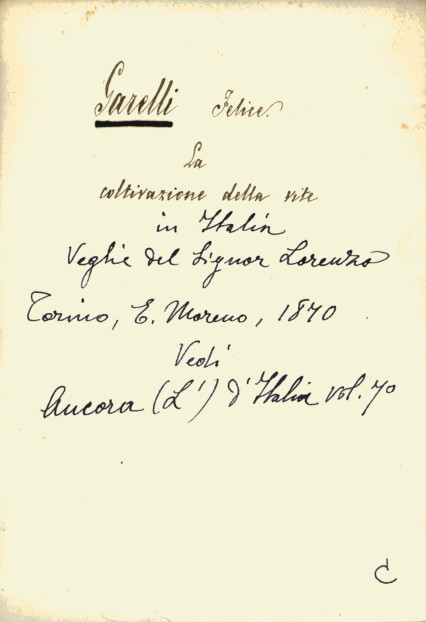 Garelli Felice.
La
coltivazione della vite
in Italia
Veglie del Signor Lorenzo
Torino, E. Moreno, 1870
Vedi
Ancora (L') d'Italia vol. 7º
C